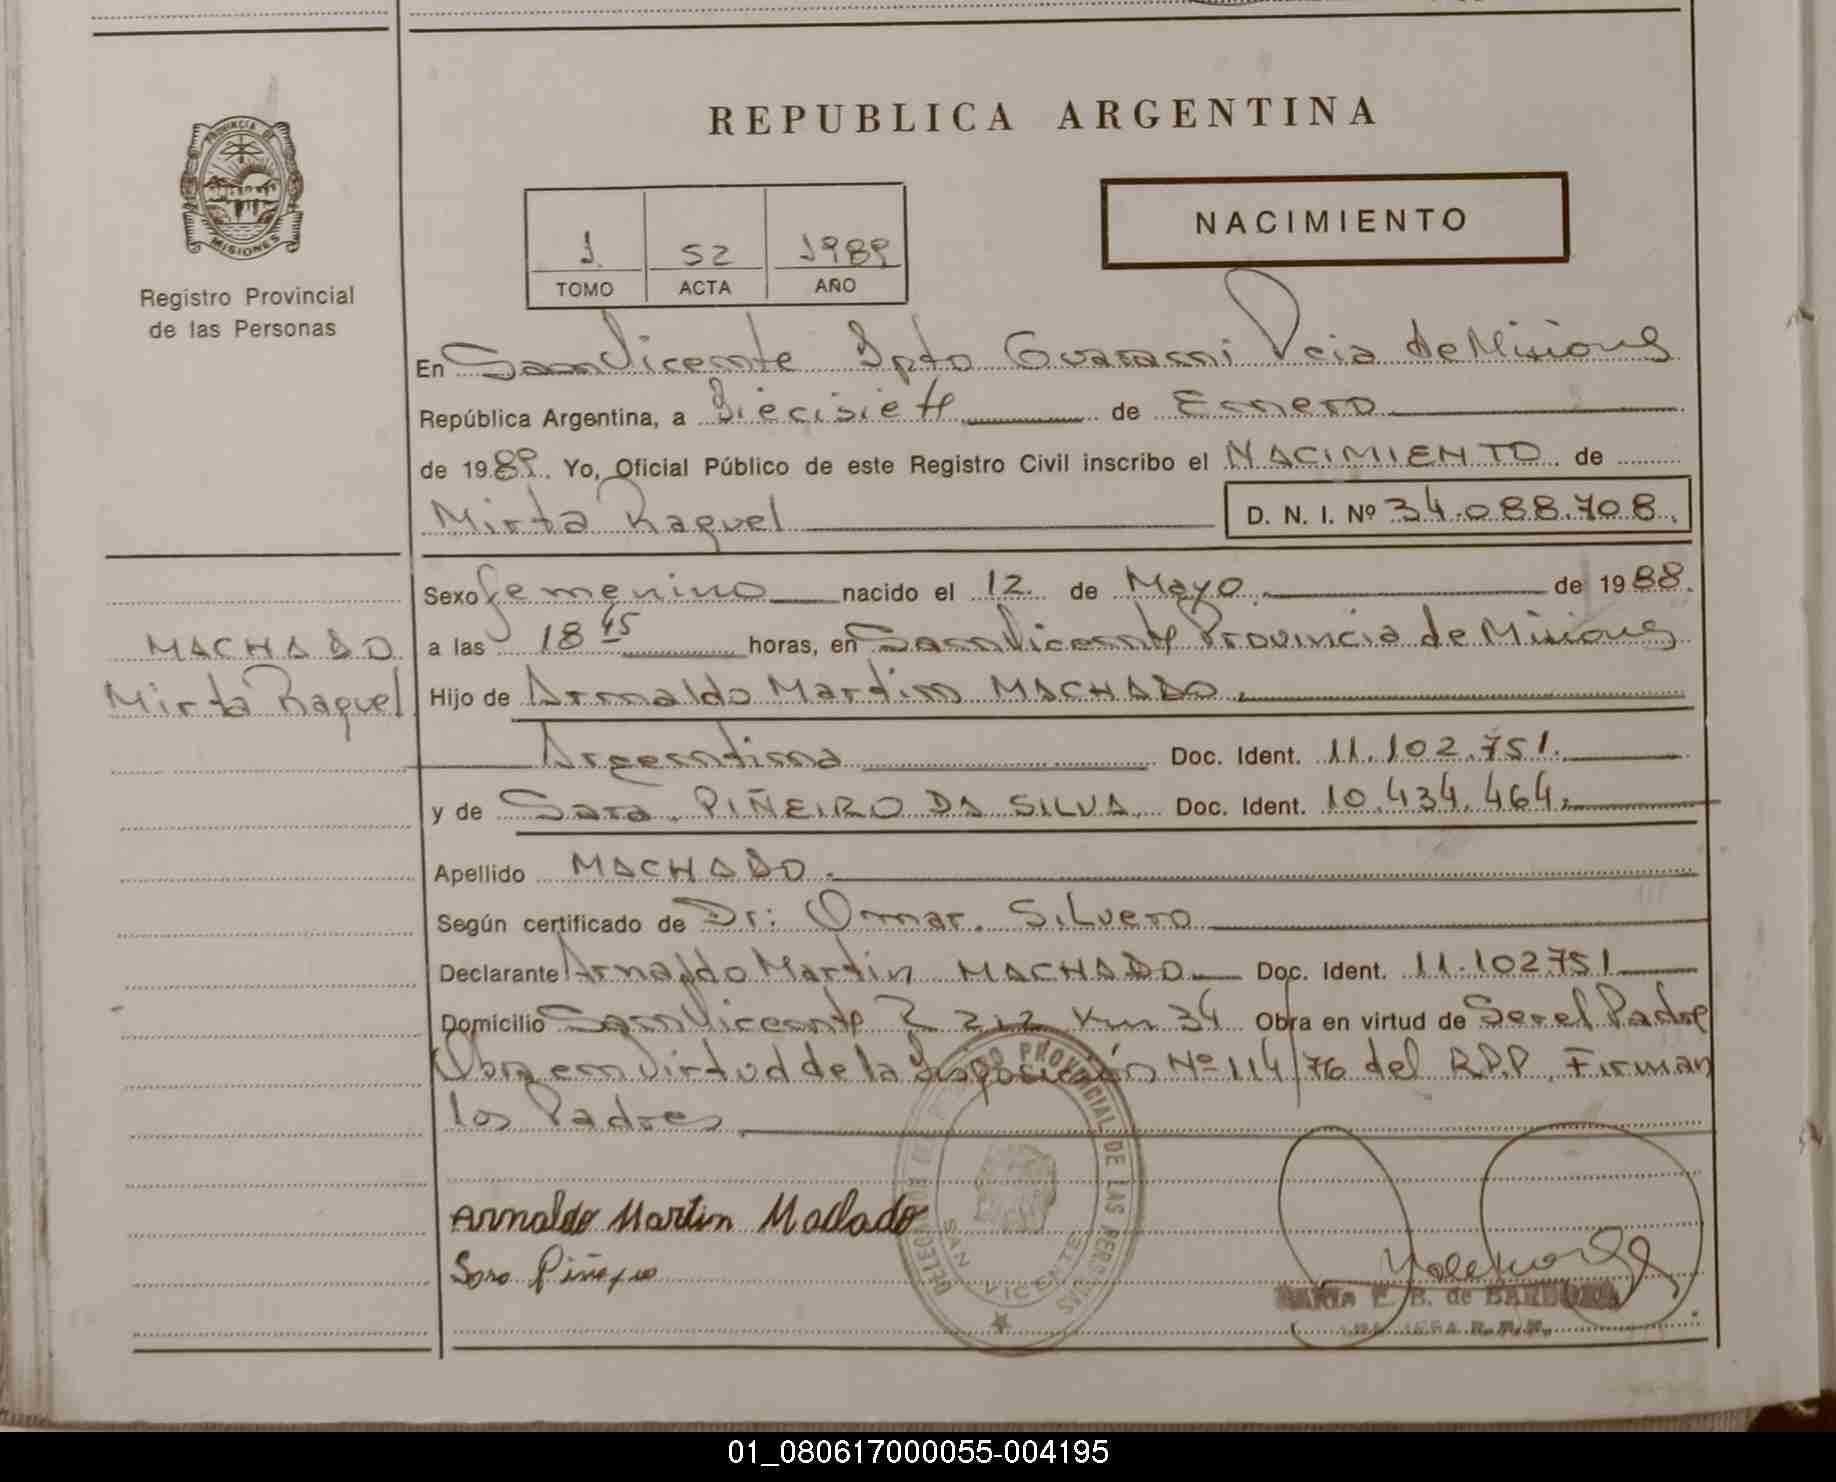 REPUBLICA ARGENTINA
PROVINCIA DE
MISIONES
Registro Provincial
de las Personas
1 52 1989
TOMO ACTA AÑO
NACIMIENTO
En San Vicente Dpto Guarani Pcia de Misiones
República Argentina, a Diecisiete de Enero
de 1989. Yo, Oficial Público de este Registro Civil inscribo el NACIMIENTO de
Mirta Raquel D. N. I. Nº 34.088.708.
MACHADO
Mirta Raquel
Sexo femenino nacido el 12. de Mayo. de 1988.
a las 18 45 horas, en San Vicente Provincia de Misiones
Hijo de Arnaldo Martin MACHADO.
Argentina Doc. Ident. 11.102.751.
y de Sara. PIÑEIRO DA SILVA. Doc. Ident. 10.434.464.
Apellido MACHADO.
Según certificado de Dr: Omar. SiLvero
Declarante Arnaldo Martin MACHADO Doc. Ident. 11.102751
Domicilio San Vicente R 212 Km 34 Obra en virtud de Ser el Padre
Obra en Virtud de la Disposición Nº 114/76 del R.P.P. Firman
los Padres
Arnaldo Martin Machado
Sara Piñeiro
PROVINCIAL DE LAS PERSONAS
SAN VICENTE
E. B. de BARBOZA
01_080617000055-004195